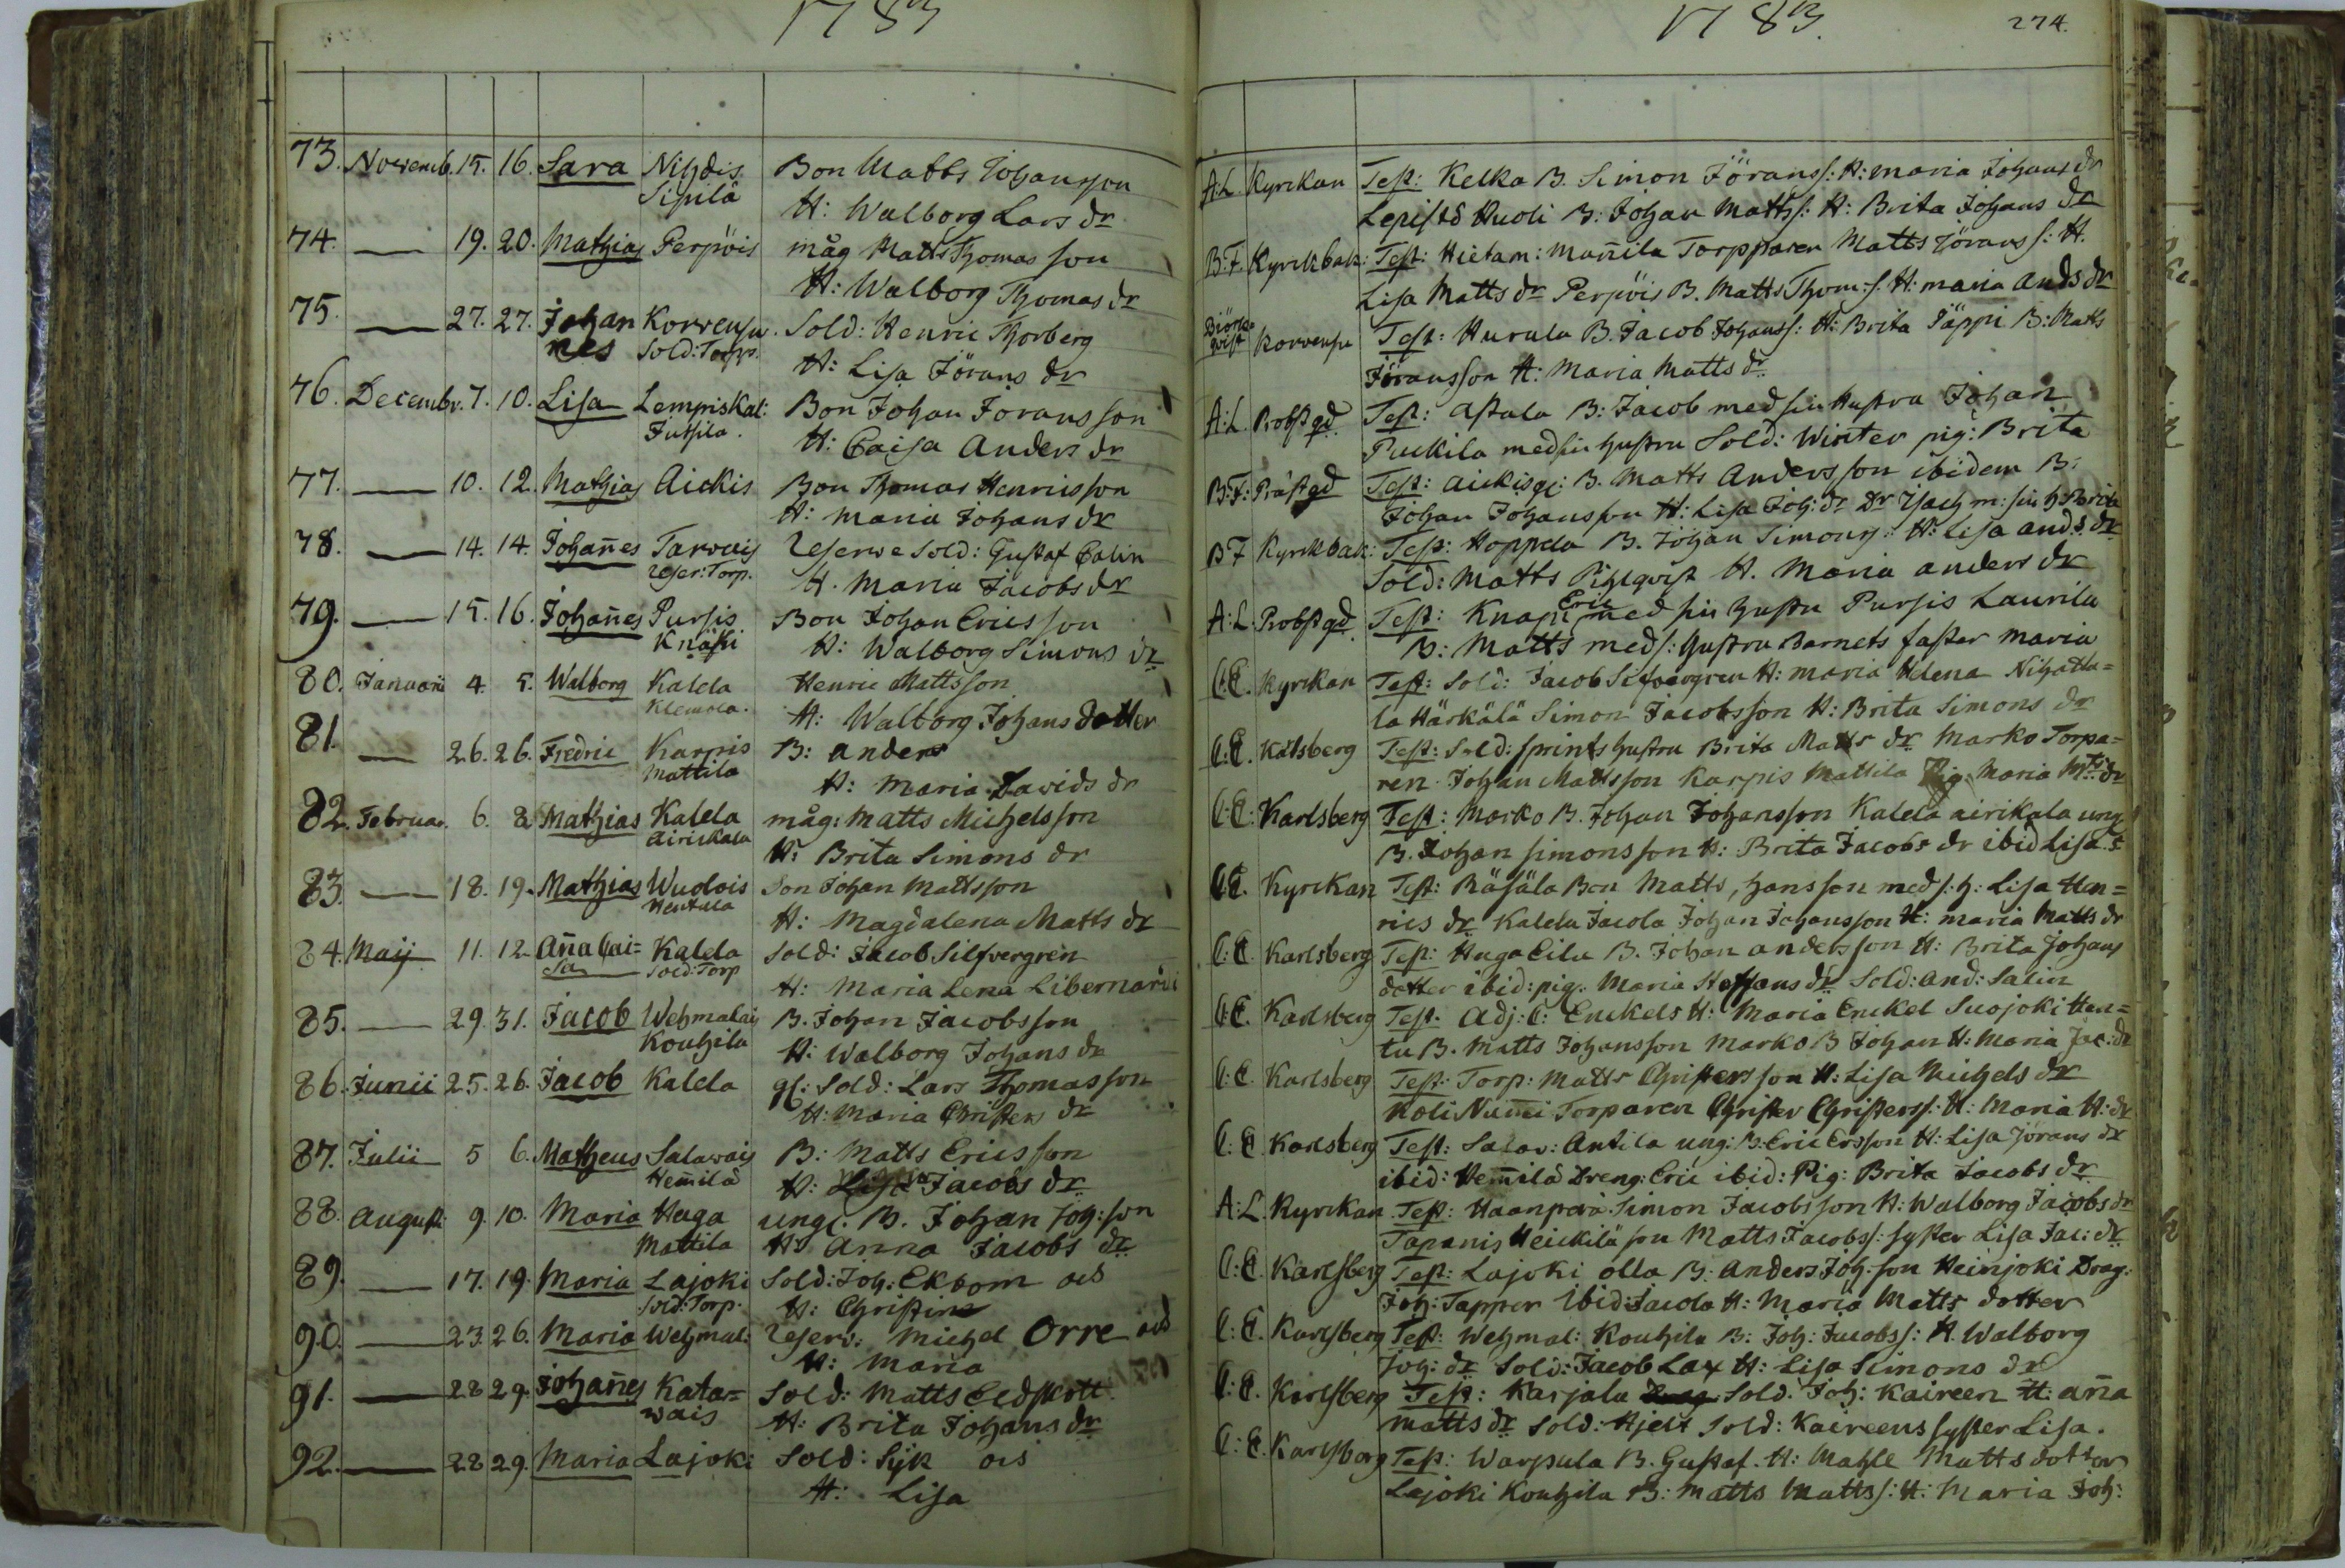 1783
73. Novemb. 15. 16. Sara Nihdis Bon Matts Johansson
Sipilä H: Walborg Lars dr
74. — 19. 20. Mathias Perpöis måg Matts Thomas son
H: Walborg Thomas dr
75. — 27. 27. Johan Korvensu. Sold: Henric Thorberg
nes Sold: Torp. H: Lisa Jörans dr
76. Decembr. 7. 10. Lisa Lempiskal: Bon Johan Jörans son
Jutsila. H: Caisa Anders dr
77. — 10. 12. Mathias Aickis Bon Thomas Henricsson
H: Maria Johans dr
78. — 14. 14. Johan̄es Tarvais Reserve Sold: Gustaf Calin
reser: Torp. H. Maria Jacobs dr
79. — 15. 16. Johan̄es Pursis Bon Johan Ericsson
Knäpi H: Walborg Simons dr
80. Januarii 4. 5. Walborg Kalela Henric Mattsson
Klemola. H: Walborg Johans dotter
81. — 26. 26. Fredric Karpis B: Anders
Mattila H: Maria Davids dr
82. Februar. 6. 8 Mathias Kalela måg: Matts Michelsson
Airickala H: Brita Simons dr
83. — 18. 19. Mathias Wuolois Son Johan Mattsson
Hentula H: Magdalena Matts dr
84. Maij 11. 12 An̄a Cai= Kalela Sold: Jacob Silfvergren
sa Sold: Torp H: Maria Lena Libernardi
85. — 29. 31. Jacob Wehmalais B. Johan Jacobsson
Kouhila H: Walborg Johans dr
86. Junii 25. 26. Jacob Kalela gl: Sold: Lars Thomasson
H: Maria Christers dr
87. Julii 5 6. Matheus Salavais B: Matts Ericsson
Hem̄ilä H: Jacobs dr
88. August: 9. 10. Maria Haga ungl. B. Johan Joh: son
Mattila H: Anna Jacobs dr
89. — 17. 19. Maria Lajoki Sold: Joh: Ekbom
Sold: Torp. H: Christina
90. — 23. 26. Maria Wehmal: Reserv: Michel Orre
H: Maria
91. — 28 29. Johan̄es Kata= Sold: Matts Eldskott
wais H: Brita Johans dr
92. — 28 29. Maria Lajoki Sold: Sijk
H: Lisa
1783. 274.
A: L. Kyrckan Test: Kelka B. Simon Jörans s: H: Maria Johans dr
Lepistö Huoli B: Johan Matts s: H: Brita Johans dr
B: F. Kyrckbak: Test: Hietam: Man̄ila Torpparen Matts Jörans s: H.
Lisa Matts dr Perpöis B. Matts Thom: s. H: Maria Ands dr
Biörkqvist Korvensu Test: Hurula B. Jacob Johans s: H: Brita Päppi B: Matts
Jöransson H: Maria Matts dr
A: L. Probstgd Test: Astala B: Jacob med sin Hustru Johan
Puckila med sin hustru Sold: Winter pig: Brita
B: F: Prästgd Test: Aickis gl: B. Matts Andersson ibidem B:
Johan Johansson H: Lisa Joh: dr Dr Isach m: sin h. Brita
B F Kyrckbak: Test: Hoppela B. Johan Simons: H: Lisa And: s dr
Sold: Matts Pihlqvist H. Maria Anders dr
A: L. Probstgd. Test: Knapi Eric med sin hustru Pursis Laurila
B: Matts med s: hustru Barnets faster Maria
C: E. Kyrckan Test: Sold: Jacob Silfvergren H: Maria Helena Nihattu=
la Härkälä Simon Jacobsson H: Brita Simons dr
C: E. Kalsberg Test: Sold: Sprints hustru Brita Matts dr Marko Torpa=
ren Johan Mattsson Karpis Mattila Pig: Maria Mts dr
C: E: Karlsberg Test: Marko B. Johan Johansson Kalela airikala ung
B. Johan Simonsson H: Brita Jacobs dr ibid Lisa
C: E. Kyrckan Test: Räfälä Bon Matts, Hansson med s: h: Lisa Hen=
rics dr Kalela Jacola Johan Johansson H: Maria Matts dr
C: E. Karlsberg Test: Haga Eila B. Johan Andersson H: Brita Johans
dotter ibid: pig: Maria Staffans dr Sold: And: Salin
C: E. Karlsberg Test: Adj: C: Enckels H: Maria Enckel Suojoki Hen=
tu B. Matts Johansson Marko B Johan H: Maria Jac: dr
C: E. Karlsberg Test: Torp: Matts Christersson H: Lisa Michels dr
Koli Num̄i Torparen Christer Christers s: H: Maria H: dr
C: E. Karlsberg Test: Salav: Antila ung: B: Eric Ersson H: Lisa Jörans dr
ibid: Hem̄ilä Dreng: Eric ibid: Pig: Brita Jacobs dr
A: L. Kyrckan Test: Haanpää Simon Jacobsson H: Walborg Jacobs dr
Tapanis Heickilä son Matts Jacobs s: syster Lisa Jac: dr
C: E. Karlsberg Test: Lajoki olla B: Anders Joh: son Heinjoki Drag:
Joh: Tapper ibid: Jacola H: Maria Matts dotter
C: E. Karlsberg Test: Wehmal: Kouhila B: Joh: Jacobs s: H. Walborg
Joh: dr Sold: Jacob Lax H: Lisa Simons dr
C: E. Karlsberg Test: Karjala Sold: Joh: Kaireen H: an̄a
Matts dr Sold: Hjelt Sold: Kaireens syster Lisa.
C: E. Karlsborg Test: Warpula B. Gustaf. H: Mahle Matts dotter
Lajoki Kouhila B: Matts Matts s: H: Maria Joh: